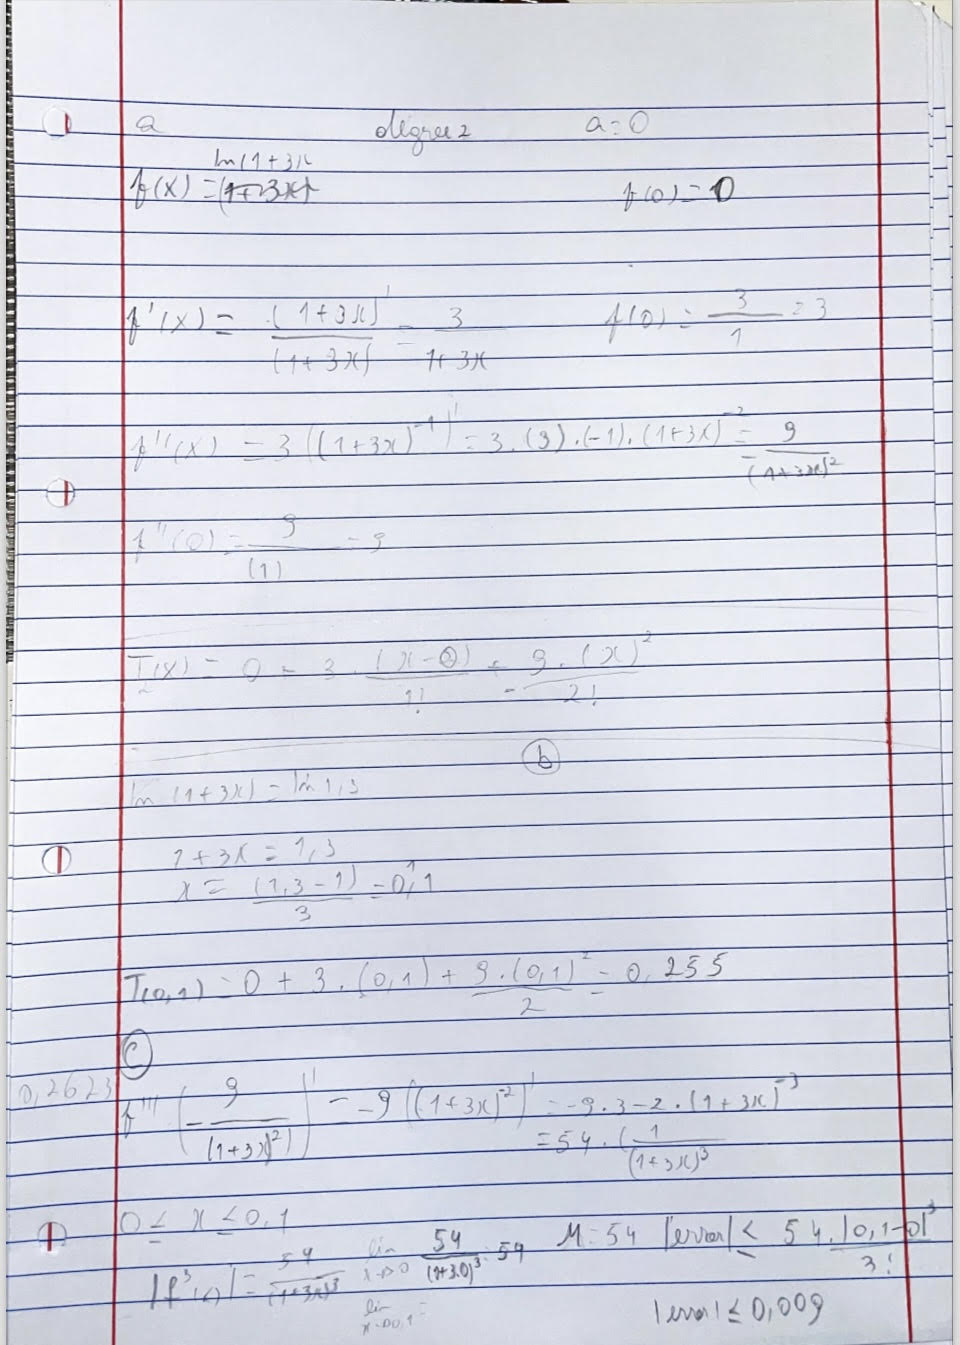 a degree 2 a=0
ln(1+3x
f(x) = (1+3x) f(0)=0
f'(x) = (1+3x)' / (1+3x) = 3 / 1+3x f(0) = 3/1 = 3
f''(x) = 3 ((1+3x)^-1)' = 3.(3).(-1).(1+3x)^-2 = - 9 / (1+3x)^2
f''(0) = 9 / (1) = 9
T2(x) = 0 + 3 . (x-0) / 1! - 9.(x)^2 / 2!
b
ln (1+3x) = ln 1,3
1+3x = 1,3
x = (1,3-1) / 3 = 0,1
T(0,1) = 0 + 3.(0,1) + 9.(0,1)^2 / 2 = 0,255
c
0,2623
f''' (- 9 / (1+3x)^2)' = -9 ((1+3x)^-2)' = -9.3-2.(1+3x)^-3
= 54 . (1 / (1+3x)^3
0 ≤ x ≤ 0,1
|f^3(x)| = 54 / (1+3x)^3 lim x→0 54 / (1+3.0)^3 = 54 M = 54 |error| ≤ 54.|0,1-0|^3 / 3!
lim x→0,1 =
|error| ≤ 0,009